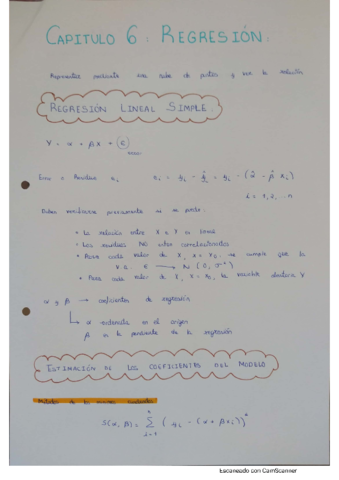 CAPITULO 6 : REGRESIÓN :
Representar mediante una nube de puntos y ver la relación
REGRESIÓN LINEAL SIMPLE :
Y = α + βX + ε
Error o Residuo e_i    e_i = y_i - ŷ_i = y_i - (α̂ - β̂ x_i)
i = 1, 2, ... n
Debe verificarse previamente
• La relación entre X e Y es lineal
• Los residuos NO están correlacionados
• Para cada valor de X, x = x₀, se cumple que la
v.a. ε → N (0, σ²)
• Para cada valor de X, x = x₀, la variable aleatoria Y
α y β → coeficientes de regresión
α ordenada en el origen
β es la pendiente de la regresión
ESTIMACIÓN DE LOS COEFICIENTES DEL MODELO
Método de los mínimos cuadrados
S(α, β) = Σ (y_i - (α + βx_i))²
Escaneado con CamScanner